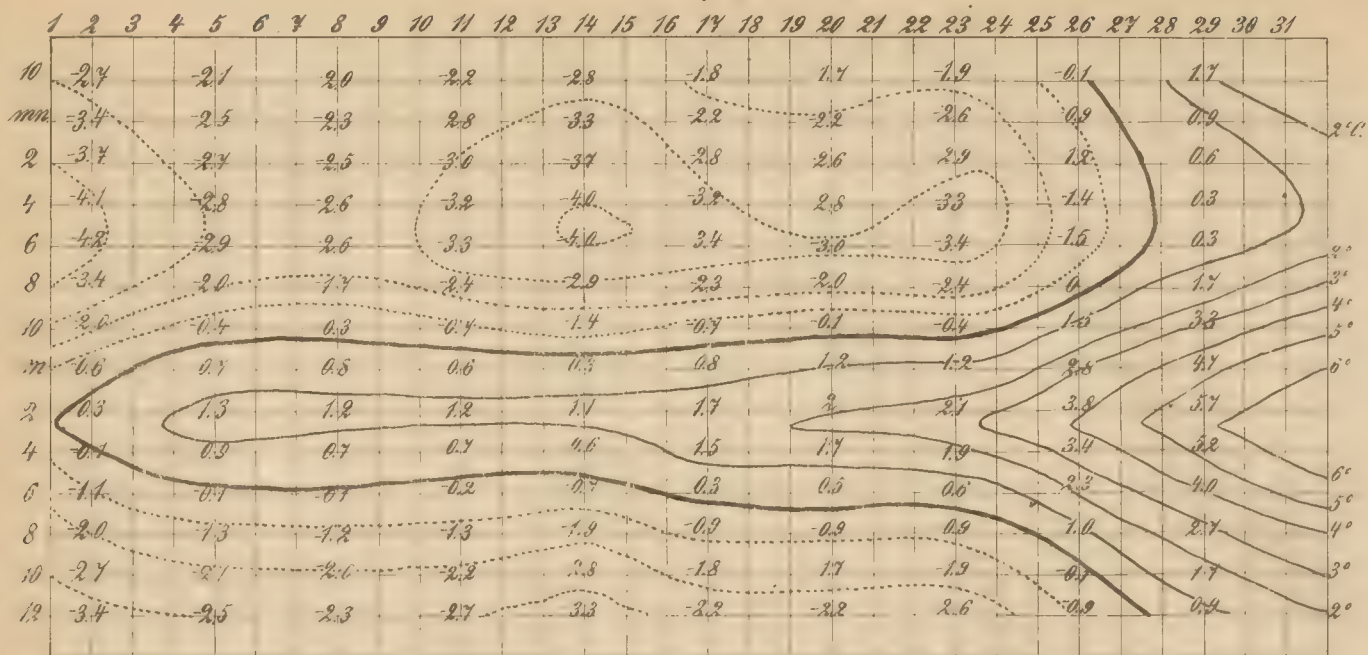 1 2 3 4 5 6 7 8 9 10 11 12 13 14 15 16 17 18 19 20 21 22 23 24 25 26 27 28 29 30 31
10 -2.7 -2.1 -2.0 -2.2 -2.8 -1.8 1.7 -1.9 -0.1 1.7
mn -3.4 -2.5 -2.3 2.8 -3.3 -2.2 -2.2 -2.6 -0.9 0.9 2°C.
2 -3.7 -2.7 -2.5 -3.0 -3.7 -2.8 2.6 2.9 1.2 0.6
4 -4.1 -2.8 -2.6 -3.2 -4.0 -3.2 2.8 -3.3 -1.4 0.3
6 -4.2 -2.9 -2.6 -3.3 -4.0 3.4 -3.0 -3.4 -1.5 0.3
2°
8 -3.4 -2.0 -1.7 -2.4 -2.9 -2.3 2.0 -2.4 0 1.7 3°
10 -2.0 -0.4 0.3 -0.7 1.4 -0.7 -0.1 -0.4 1.5 3.3 4°
5°
m -0.6 0.7 0.8 0.6 0.3 0.8 1.2 1.2 2.8 4.7 6°
2 0.3 1.3 1.2 1.2 1.1 1.7 2 2.1 3.8 5.7
4 -0.1 0.9 0.7 0.7 0.6 1.5 1.7 1.9 3.4 5.2
6° 
6 -1.1 -0.1 -0.1 -0.2 -0.7 0.3 0.5 0.6 2.3 4.0 5°
8 -2.0 -1.3 -1.2 -1.3 1.9 -0.9 -0.9 0.9 1.0 2.7 4°
10 -2.7 -2.1 -2.0 -2.2 2.8 -1.8 1.7 -1.9 -0.1 1.7 3°
12 -3.4 -2.5 -2.3 -2.7 3.3 -2.2 -2.2 2.6 -0.9 0.9 2°